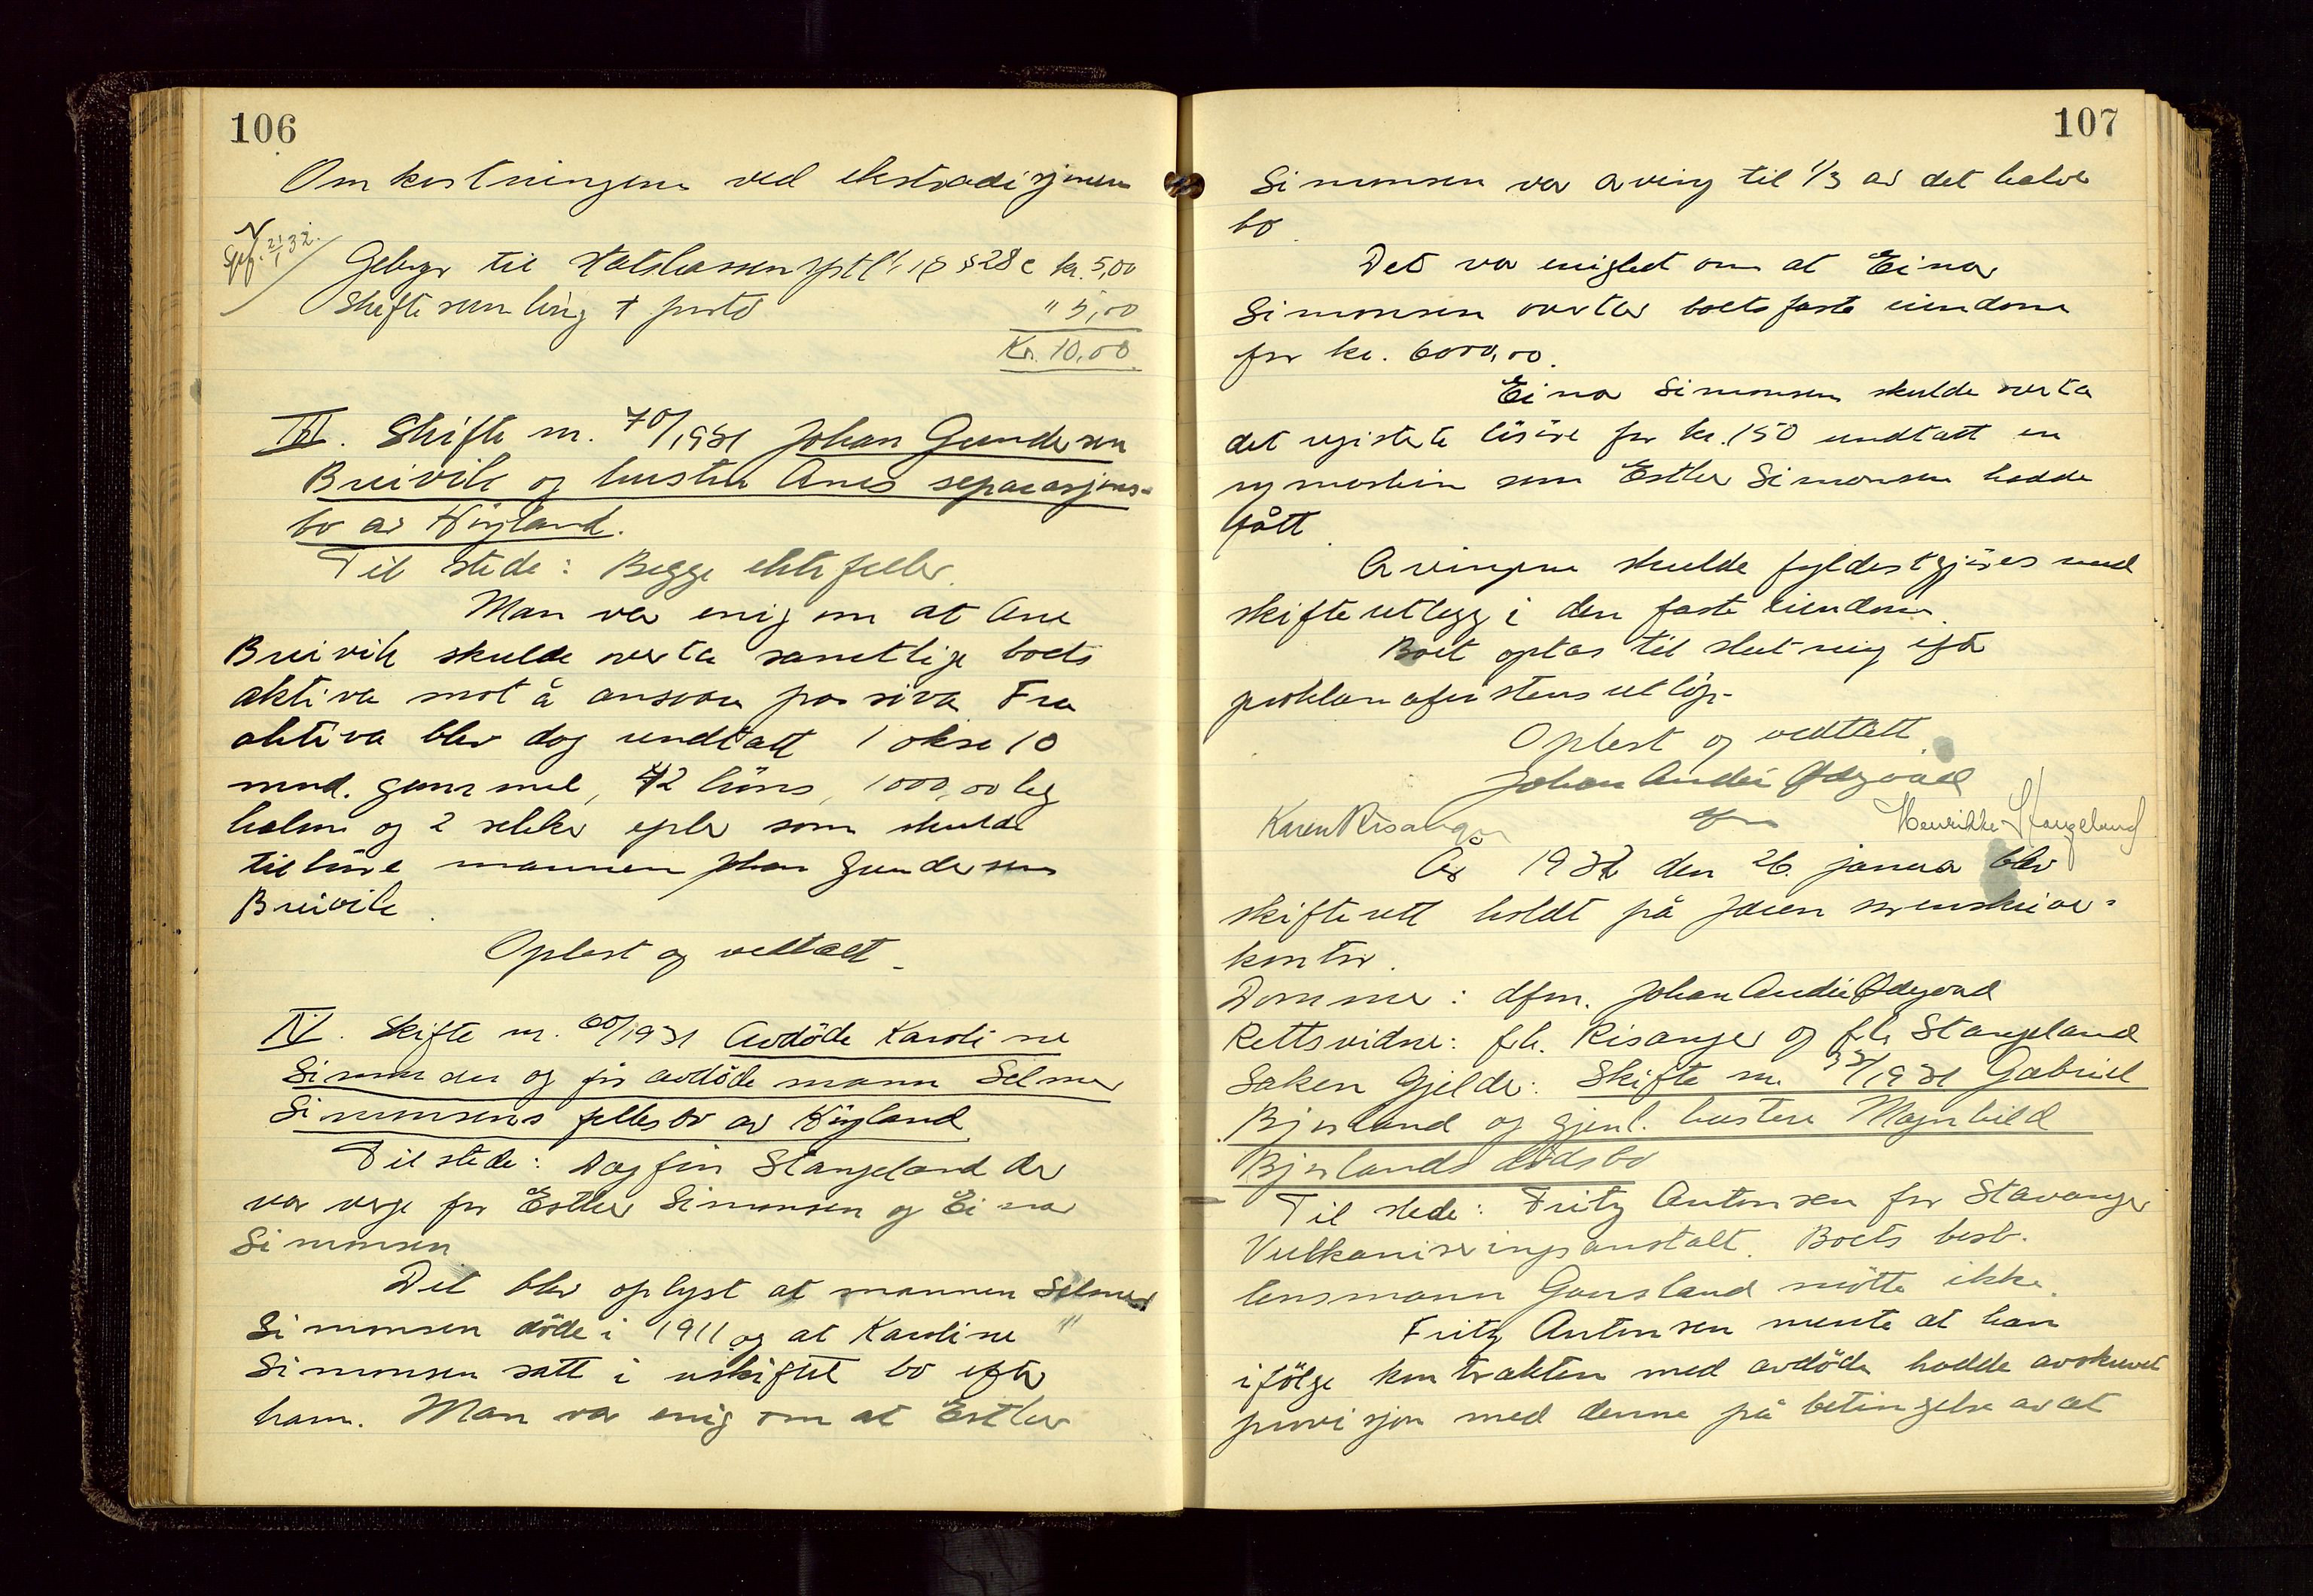 106
Omkostningene ved ekstradisjonen
21/1 32.
Gebyr til Statskassen sptl. § 28 c kr. 5,00
Skiftesamling + porto " 5,00
Kr. 10,00
III. Skifte nr. 70/1931 Johan Gundersen
Breivik og hustru Anes separasjons-
bo av Höyland.
Til stede: Begge ektefeller.
Man var enig om at Ane
Breivik skulde overta samtlige boets
aktiva mot å ansvare passiva. Fra
aktiva blev dog undtatt 1 okse 10
mnd. gammel, 42 höns, 1000,00 kg
halm og 2 sekker epler som skulde
tilhöre mannen Johan Gundersen
Breivik.
Oplest og vedtatt.
IV. Skifte nr. 60/1931 Avdöde Karoline
Simonsen og för avdöde mann Selmer
Simonsens fellesbo av Höyland
Til stede: Dagfin Stangeland der
var verge for Esther Simonsen og Einar
Simonsen
Det blev oplyst at mannen Selmer
Simonsen döde i 1911 og at Karoline
Simonsen satt i uskiftet bo efter
ham. Man var enig om at Esther
107
Simonsen var arving til 1/3 av det halve
bo.
Det var enighet om at Einar
Simonsen overtar boets faste eiendom
for kr. 6000,00.
Einar Simonsen skulde overta
det registrerte lösöre for kr. 150 undtatt en
symaskin som Esther Simonsen hadde
fått.
Arvingene skulde fyldestgjöres med
skifteutlegg i den faste eiendom.
Boet optas til slutning efter
proklamafristens utlöp.
Oplest og vedtatt.
Johan André Ødegaard
Karen Risanger dfm Henrikke Stangeland
År 1932 den 26. januar blev
skifterett holdt på Jæren sorenskriver-
kontor.
Dommer: dfm. Johan André Ødegaard
Rettsvidne: frk. Risanger og frk. Stangeland
Saken Gjelder: Skifte nr. 33/1931 Gabriel
Bjorland og gjenl. hustru Magnhild
Bjorlands dödsbo
Til stede: Fritz Antonsen for Stavanger
Vulkaniseringsanstalt. Boets best.
lensmann Gausland mötte ikke.
Fritz Antonsen mente at han
ifölge kontrakten med avdöde hadde avskrevet
provisjon med denne på betingelse av at